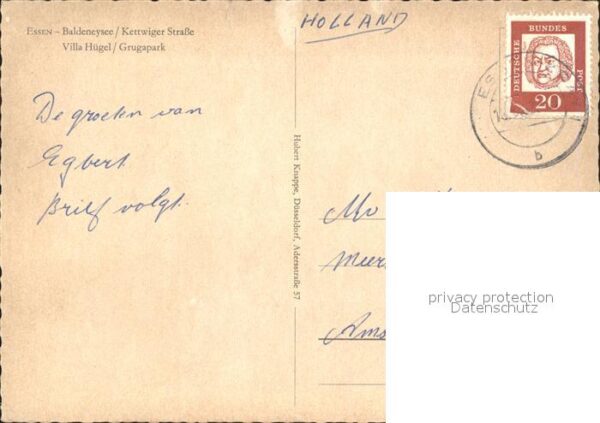 Essen – Baldeneysee / Kettwiger Straße
Villa Hügel / Grugapark
HOLLAND
DEUTSCHE BUNDES POST
20
b
De groeten van
Egbert.
Brief volgt.
Hubert Knappe, Düsseldorf, Adersstraße 57
privacy protection
Datenschutz